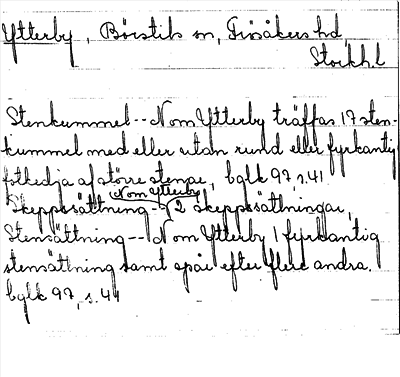 Ytterby, Börstils sn, Frösåkers hd
Stockh.l
Stenkummel -- N om Ytterby träffas 17 sten-
kummel med eller utan rund eller fyrkantig
fotkedja af större stenar, bglk 97, s. 41
Skeppssättning -- N om Ytterby 2 skeppssättningar,
Stensättning -- N om Ytterby 1 fyrkantig
stensättning samt spår efter flere andra.
bglk 97, s. 41